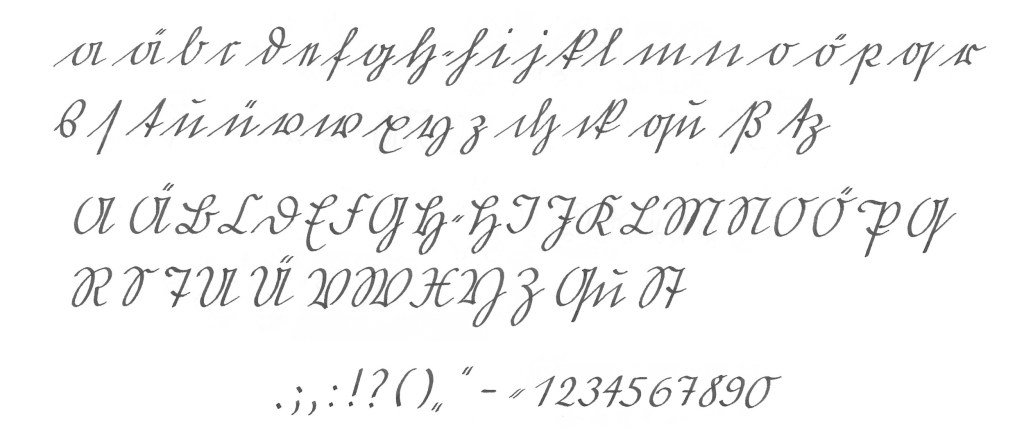 a ä b c d e f g h⸗h i j k l m n o ö p q r
s ſ t u ü v w x y z ch ck qu ß tz
A Ä B C D E F G H⸗H I J K L M N O Ö P Q
R S T U Ü V W X Y Z Qu St
.;,:!?()„ “ - ⸗ 1234567890